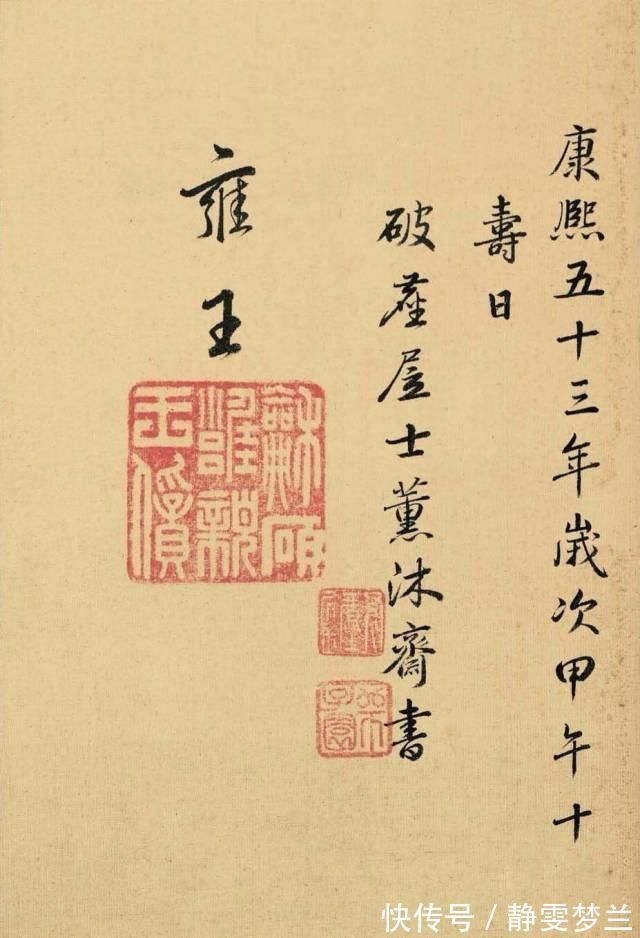 康熙五十三年歲次甲午十
壽日
破塵居士薰沐齋書
雍王
龢碩
雝親
王
快传号/静雯梦兰